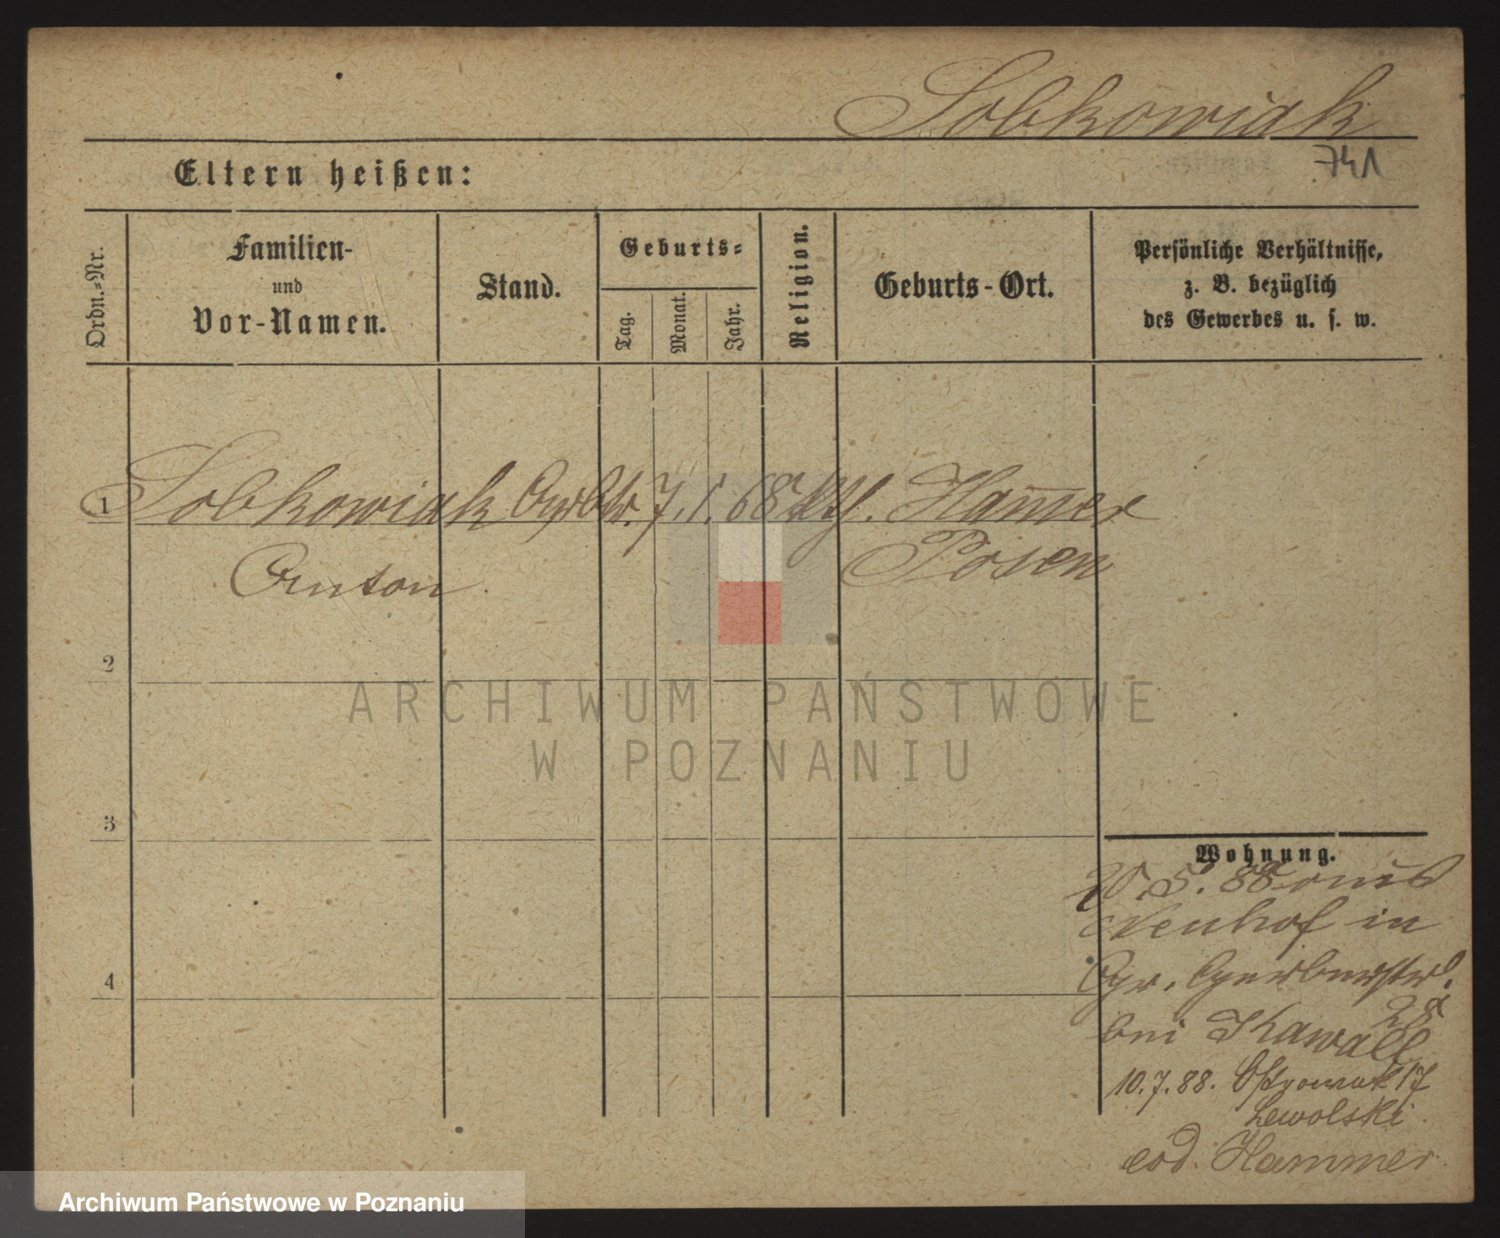 Sobkowiak
741
Eltern heißen:
Ordn.-Nr.
Familien-
und
Vor-Namen.
Stand.
Geburts-
Tag.
Monat.
Jahr.
Religion.
Geburts-Ort.
Persönliche Verhältnisse,
z. B. bezüglich
des Gewerbes u. s. w.
1 Sobkowiak 7. 1. 68 Ham̅er
Anton Posen
2
ARCHIWUM PAŃSTWOWE
W POZNANIU
3
Wohnung.
20. 5. 88 aus
Neuhof in
Gr. Gerberstr.
28
bei Kawall
10.7.88. Ostrowek 17
Lewolski
eod. Hammer
4
Archiwum Państwowe w Poznaniu